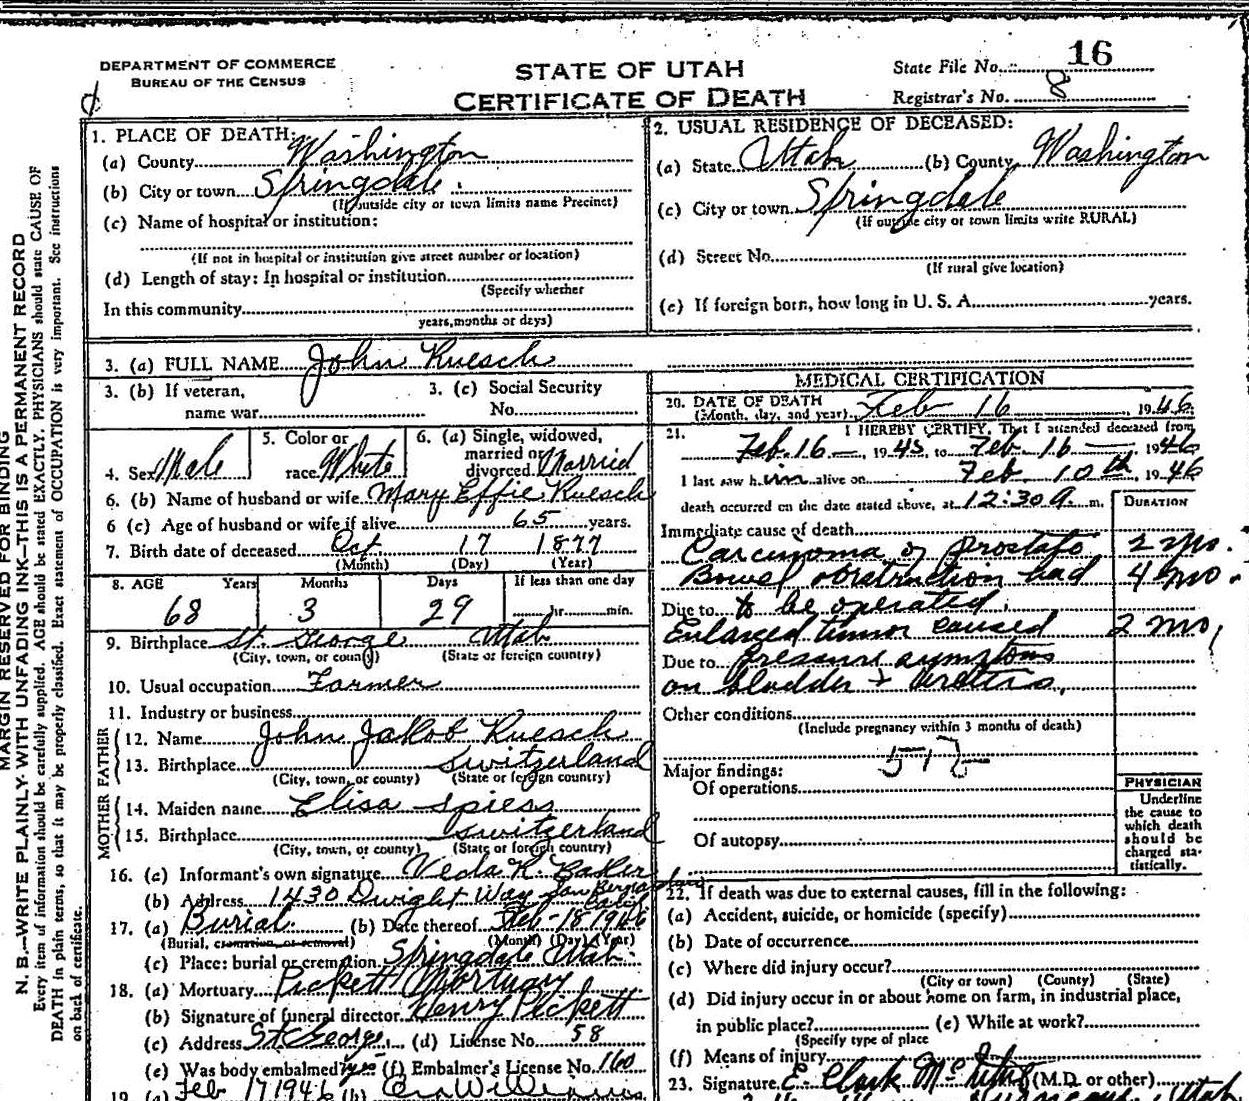 DEPARTMENT OF COMMERCE
BUREAU OF THE CENSUS
STATE OF UTAH
CERTIFICATE OF DEATH
State File No. 16
Registrar's No. 8
MARGIN RESERVED FOR BINDING
N. B.—WRITE PLAINLY WITH UNFADING INK—THIS IS A PERMANENT RECORD
Every item of information should be carefully supplied. AGE should be stated EXACTLY, PHYSICIANS should state CAUSE OF
DEATH in plain terms, so that it may be properly classified. Exact statement of OCCUPATION is very important. See instructions
on back of certificate.
1. PLACE OF DEATH:
(a) County Washington
(b) City or town Springdale
(If outside city or town limits name Precinct)
(c) Name of hospital or institution:
(If not in hospital or institution give street number or location)
(d) Length of stay: In hospital or institution
(Specify whether
In this community
years, months or days)
2. USUAL RESIDENCE OF DECEASED:
(a) State Utah (b) County Washington
(c) City or town Springdale
(If outside city or town limits write RURAL)
(d) Street No.
(If rural give location)
(e) If foreign born, how long in U. S. A. years.
3. (a) FULL NAME John Ruesch
3. (b) If veteran, name war
3. (c) Social Security No.
4. Sex Male
5. Color or race White
6. (a) Single, widowed, married or divorced Married
6. (b) Name of husband or wife Mary Effie Ruesch
6 (c) Age of husband or wife if alive 65 years.
7. Birth date of deceased Oct 17 1877
(Month) (Day) (Year)
8. AGE Years Months Days If less than one day
68 3 29 hr. min.
9. Birthplace St. George Utah
(City, town, or county) (State or foreign country)
10. Usual occupation Farmer
11. Industry or business
FATHER
12. Name John Jakob Ruesch
13. Birthplace Switzerland
(City, town, or county) (State or foreign country)
MOTHER
14. Maiden name Elisa Spiess
15. Birthplace Switzerland
(City, town, or county) (State or foreign country)
16. (a) Informant's own signature Veda R. Baker
(b) Address 1430 Dwight Way San Bernardino Calif
17. (a) Burial (b) Date thereof Feb-18 1946
(Burial, cremation, or removal) (Month) (Day) (Year)
(c) Place: burial or cremation Springdale Utah.
18. (a) Mortuary Pickett Mortuary
(b) Signature of funeral director Henry Pickett
(c) Address St George (d) License No. 58
(e) Was body embalmed yes (f) Embalmer's License No. 160
19. (a) Feb 17 1946 (b)
MEDICAL CERTIFICATION
20. DATE OF DEATH
(Month, day, and year) Feb 16 1946
21. I HEREBY CERTIFY, That I attended deceased from
Feb. 16 —, 1945, to Feb. 16 — 1946
I last saw him alive on Feb. 10th, 1946
death occurred on the date stated above, at 12:30 a. m.
DURATION
Immediate cause of death
Carcinoma of prostate 22 mo.
Bowel obstruction had 4 mo.
Due to to be operated.
Enlarged tumor caused 2 mo.
Due to pressure symptoms
on bladder +
Other conditions
(Include pregnancy within 3 months of death)
Major findings:
Of operations
Of autopsy
PHYSICIAN
Underline
the cause to
which death
should be
charged sta-
tistically.
22. If death was due to external causes, fill in the following:
(a) Accident, suicide, or homicide (specify)
(b) Date of occurrence
(c) Where did injury occur?
(City or town) (County) (State)
(d) Did injury occur in or about home on farm, in industrial place,
in public place? (e) While at work?
(Specify type of place
(f) Means of injury
23. Signature E. Clark (M.D. or other)
Hurricane, Utah